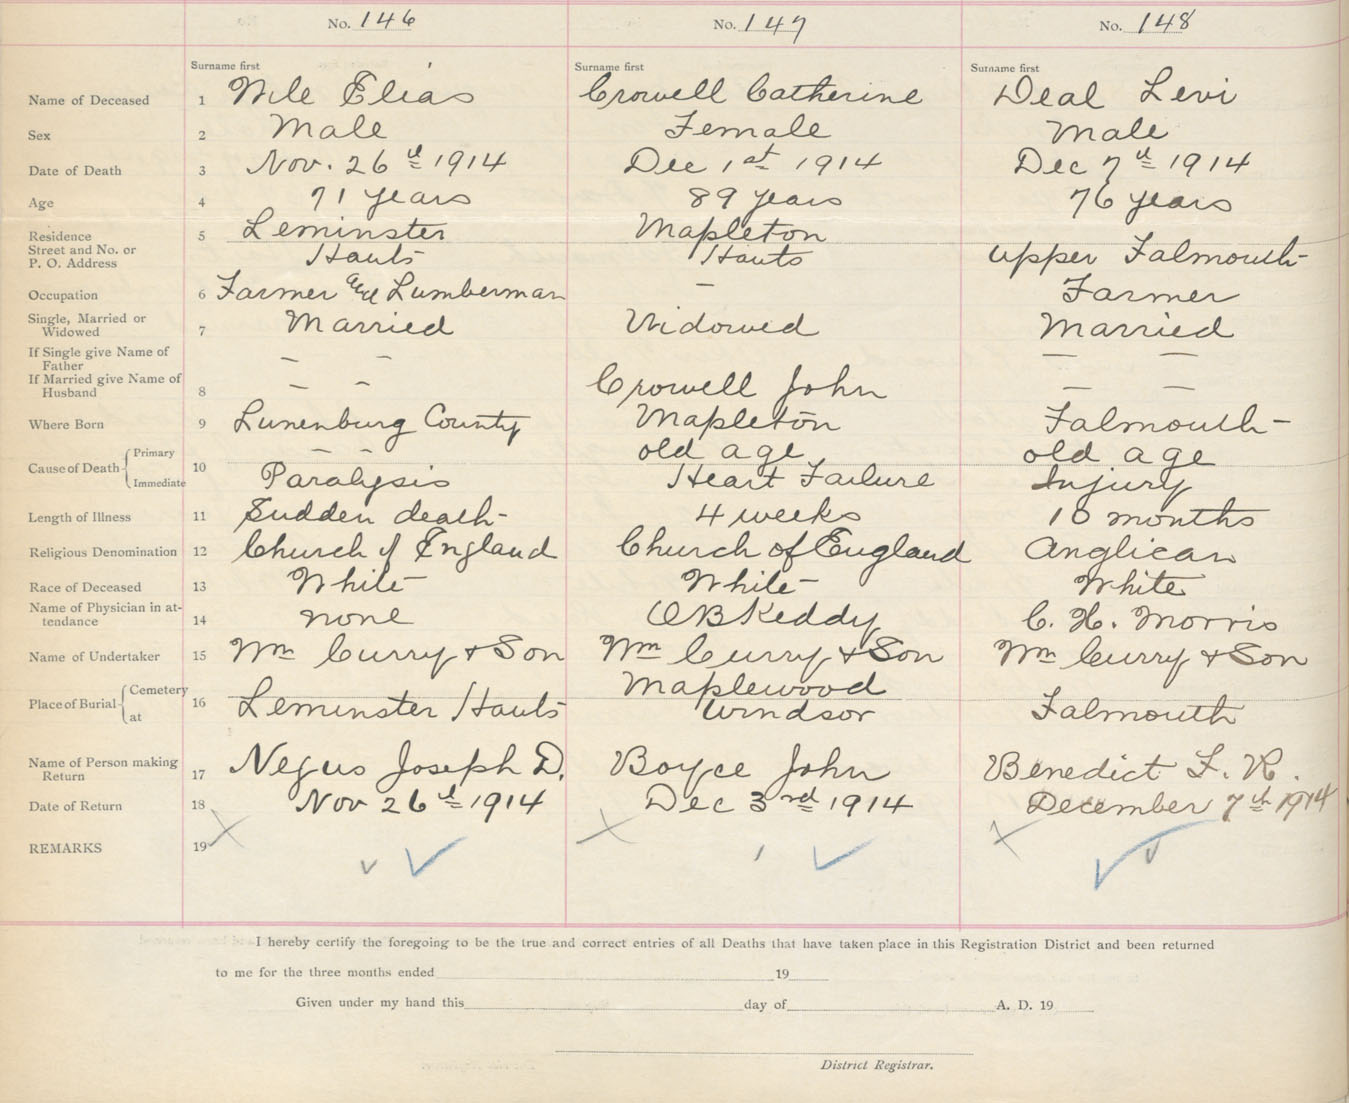 No. 146 No. 147 No. 148
Surname first Surname first Surname first
Name of Deceased 1 Wile Elias Crowell Catherine Deal Levi
Sex 2 Male Female Male
Date of Death 3 Nov. 26th 1914 Dec 1st 1914 Dec 7th 1914
Age 4 71 years 89 years 76 years
Residence 5 Leminster Mapleton
Street and No. or Hants Hants Upper Falmouth
P. O. Address
Occupation 6 Farmer and Lumberman – Farmer
Single, Married or
Widowed 7 Married Widowed Married
If Single give Name of – – — —
Father
If Married give Name of
Husband 8 – – Crowell John — —
Where Born 9 Lunenburg County Mapleton Falmouth
Cause of Death Primary – – old age old age
10
Immediate Paralysis Heart Failure Injury
Length of Illness 11 Sudden death 4 weeks 10 months
Religious Denomination 12 Church of England Church of England Anglican
Race of Deceased 13 White White White
Name of Physician in at-
tendance 14 none O B Keddy C. H. Morris
Name of Undertaker 15 Wm Curry & Son Wm Curry & Son Wm Curry & Son
Place of Burial Cemetery Maplewood
at 16 Leminster Hants Windsor Falmouth
Name of Person making
Return 17 Negus Joseph D. Boyce John Benedict F. R.
Date of Return 18 Nov 26th 1914 Dec 3rd 1914 December 7th 1914
REMARKS 19
I hereby certify the foregoing to be the true and correct entries of all Deaths that have taken place in this Registration District and been returned
to me for the three months ended 19
Given under my hand this day of A. D. 19
District Registrar.